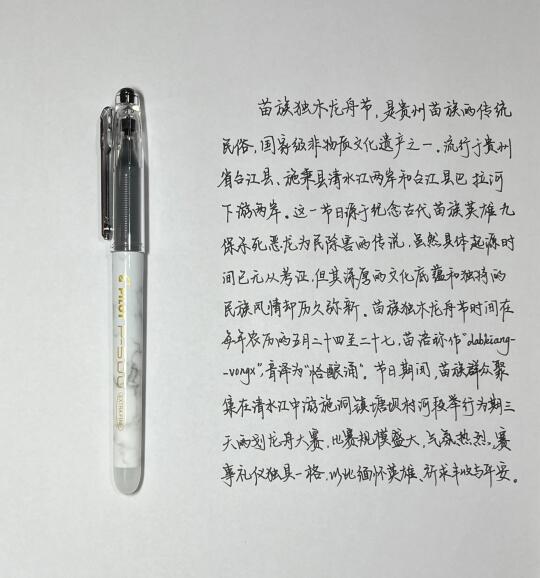 PILOT
P-500
EXTRA FINE
苗族独木龙舟节,是贵州苗族的传统
民俗,国家级非物质文化遗产之一。流行于贵州
省台江县、施秉县清水江两岸和台江县巴拉河
下游两岸。这一节日源于纪念古代苗族英雄九
保杀死恶龙为民除害的传说,虽然具体起源时
间已无从考证,但其深厚的文化底蕴和独特的
民族风情却历久弥新。苗族独木龙舟节时间在
每年农历的五月二十四至二十七,苗语称作"dabkiang-
-vongx",音译为"恰酿涌"。节日期间,苗族群众聚
集在清水江中游施洞镇塘坝村河段举行为期三
天的划龙舟大赛,比赛规模盛大,气氛热烈,赛
事礼仪独具一格,以此缅怀英雄、祈求丰收与平安。